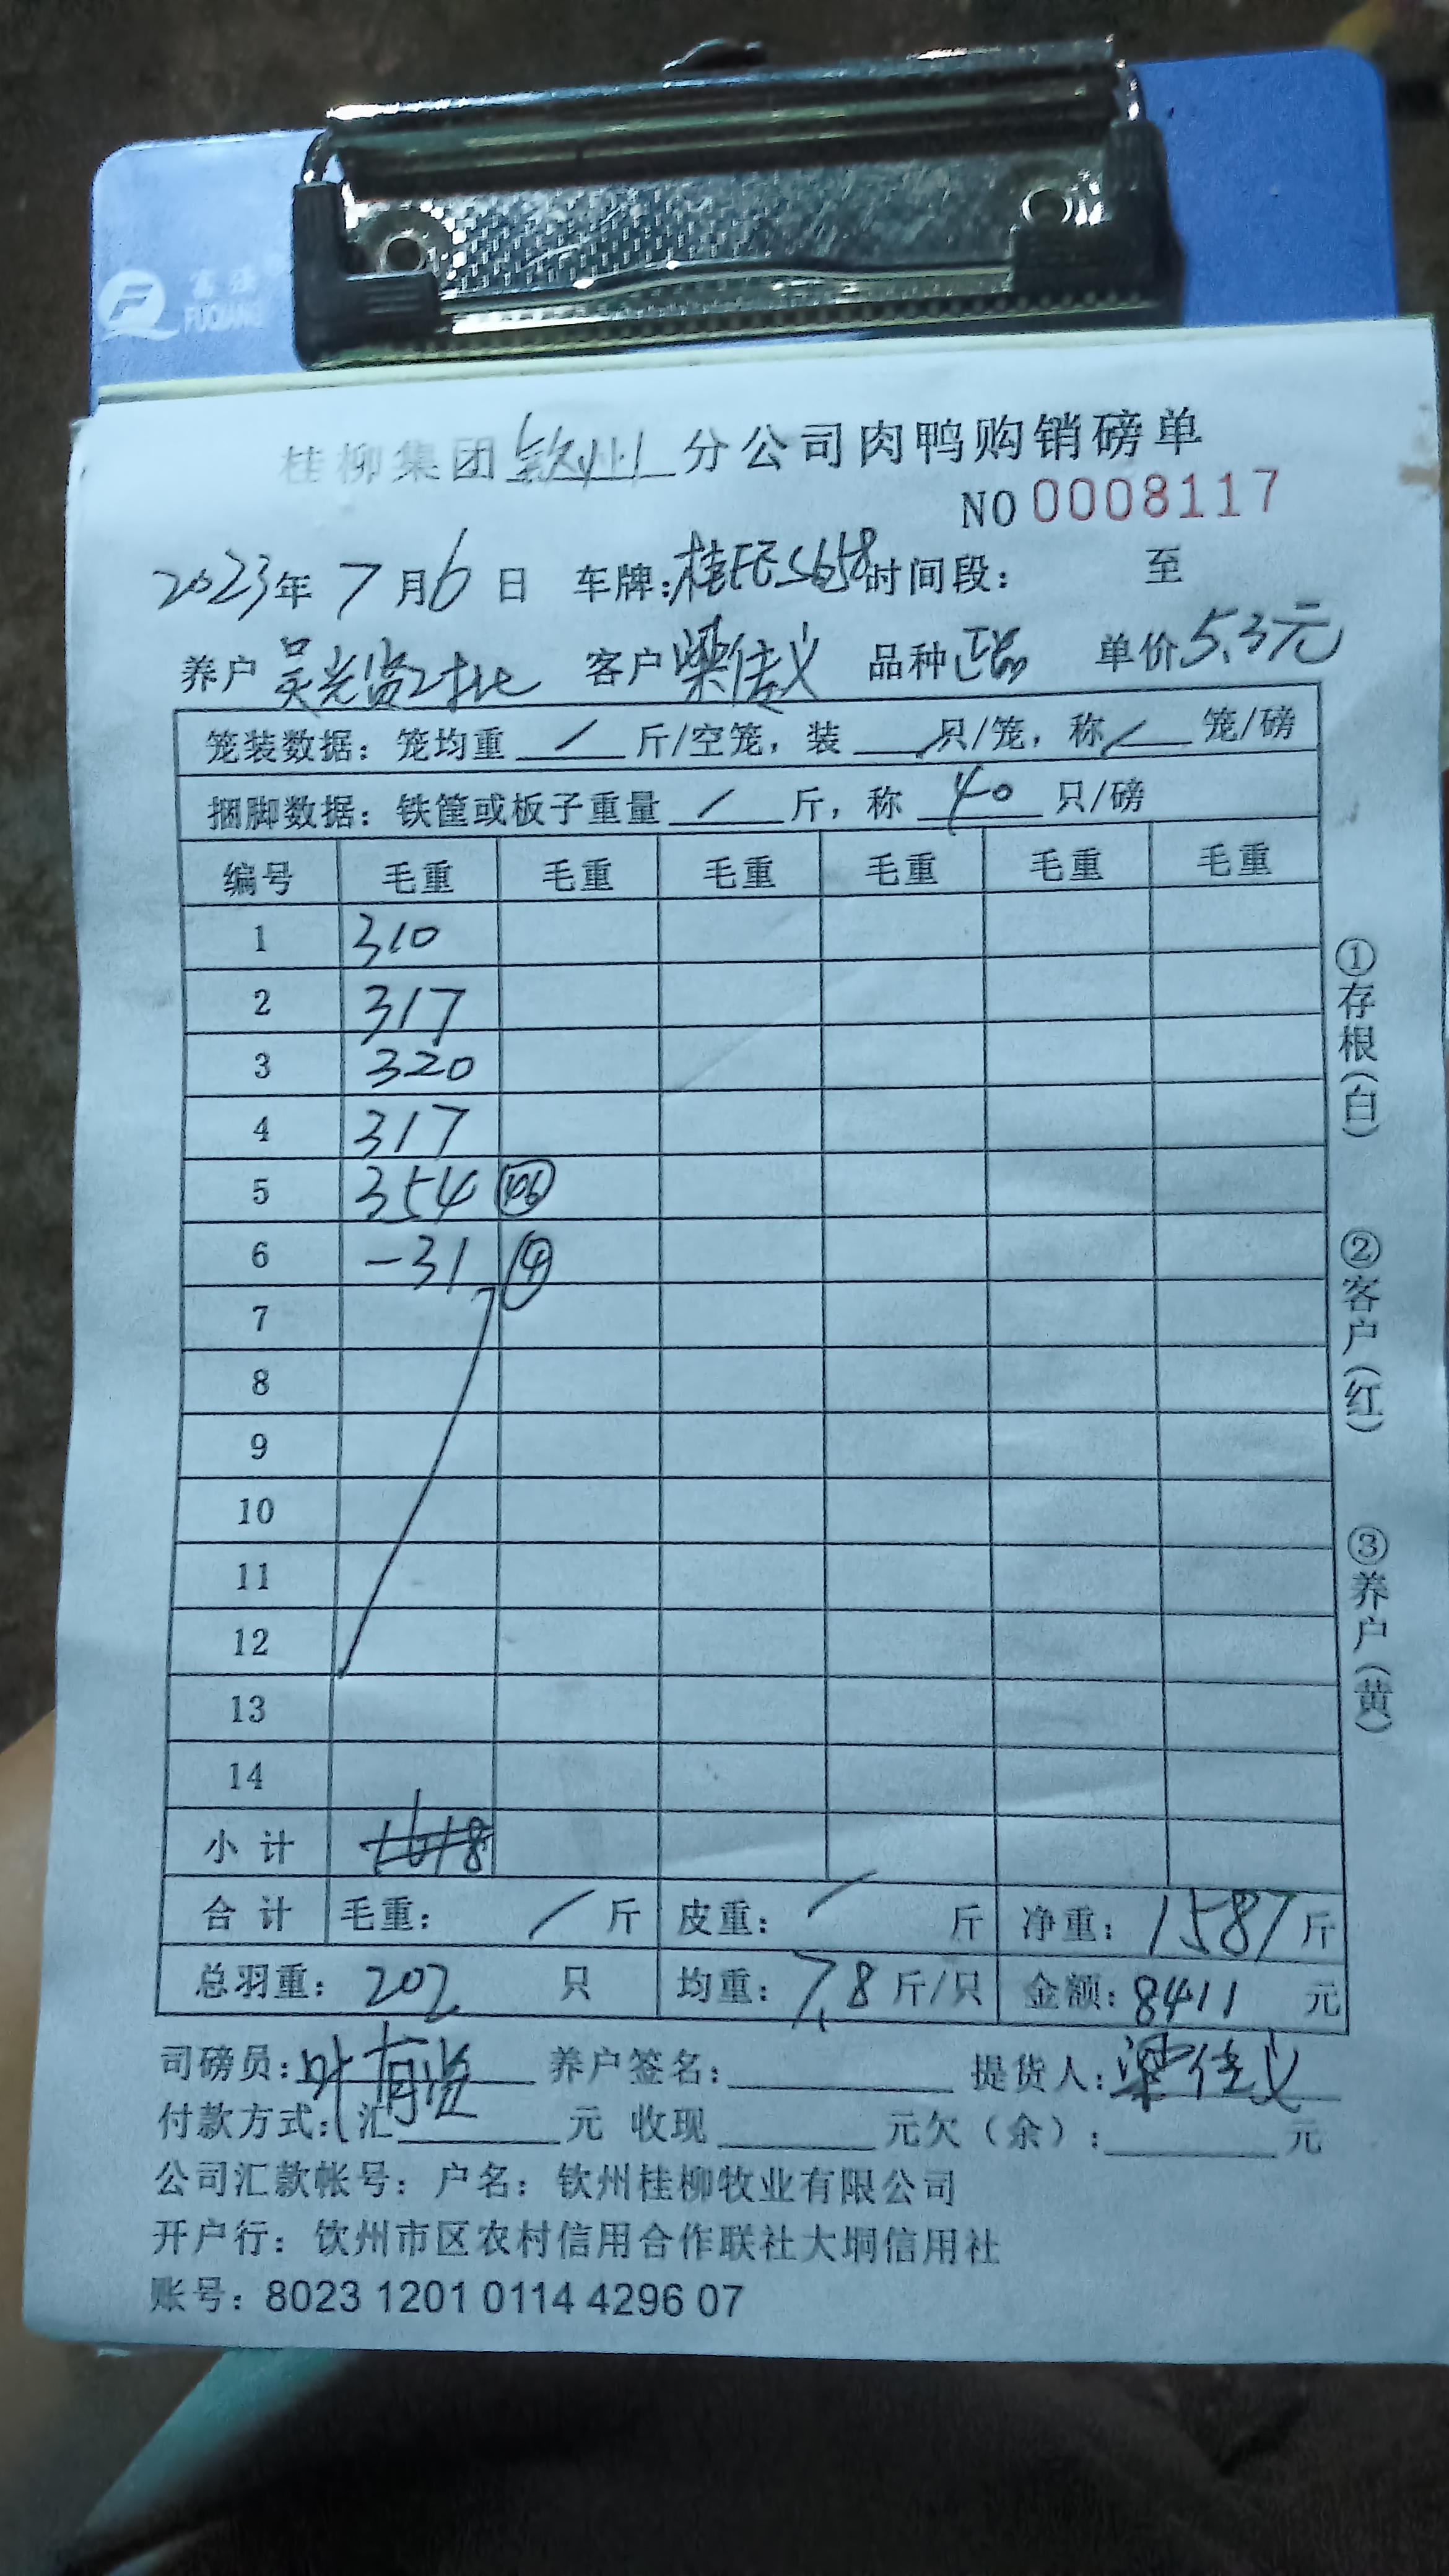 富强
FUQIANG
桂柳集团钦州分公司肉鸭购销磅单
NO 0008117
2023年7月6日 车牌:桂 S658时间段: 至
养户 吴光贤2批 客户 梁佳义 品种 正品 单价 5.3元
笼装数据: 笼均重 / 斤/空笼, 装 / 只/笼, 称 / 笼/磅
捆脚数据: 铁筐或板子重量 / 斤, 称 40 只/磅
编号 毛重 毛重 毛重 毛重 毛重 毛重
1 310
2 317
3 320
4 317
5 354
6 -31 ④
7
8
9
10
11
12
13
14
小计 1618
合计 毛重: / 斤 皮重: / 斤 净重: 1587 斤
总羽重: 202 只 均重: 7.8 斤/只 金额: 8411 元
司磅员: 叶 养户签名: 提货人: 梁佳义
付款方式: 汇 元 收现 元欠(余): 元
公司汇款帐号: 户名: 钦州桂柳牧业有限公司
开户行: 钦州市区农村信用合作联社大垌信用社
账号: 8023 1201 0114 4296 07
①存根(白)
②客户(红)
③养户(黄)